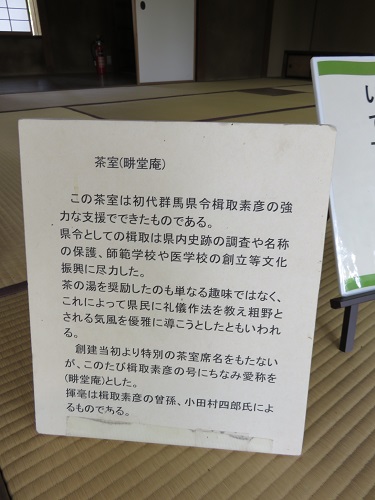 茶室(畊堂庵)
この茶室は初代群馬県令楫取素彦の強
力な支援でできたものである。
県令としての楫取は県内史跡の調査や名称
の保護、師範学校や医学校の創立等文化
振興に尽力した。
茶の湯を奨励したのも単なる趣味ではなく、
これによって県民に礼儀作法を教え粗野と
される気風を優雅に導こうとしたともいわれ
る。
創建当初より特別の茶室席名をもたない
が、このたび楫取素彦の号にちなみ愛称を
(畊堂庵)とした。
揮毫は楫取素彦の曾孫、小田村四郎氏によ
るものである。